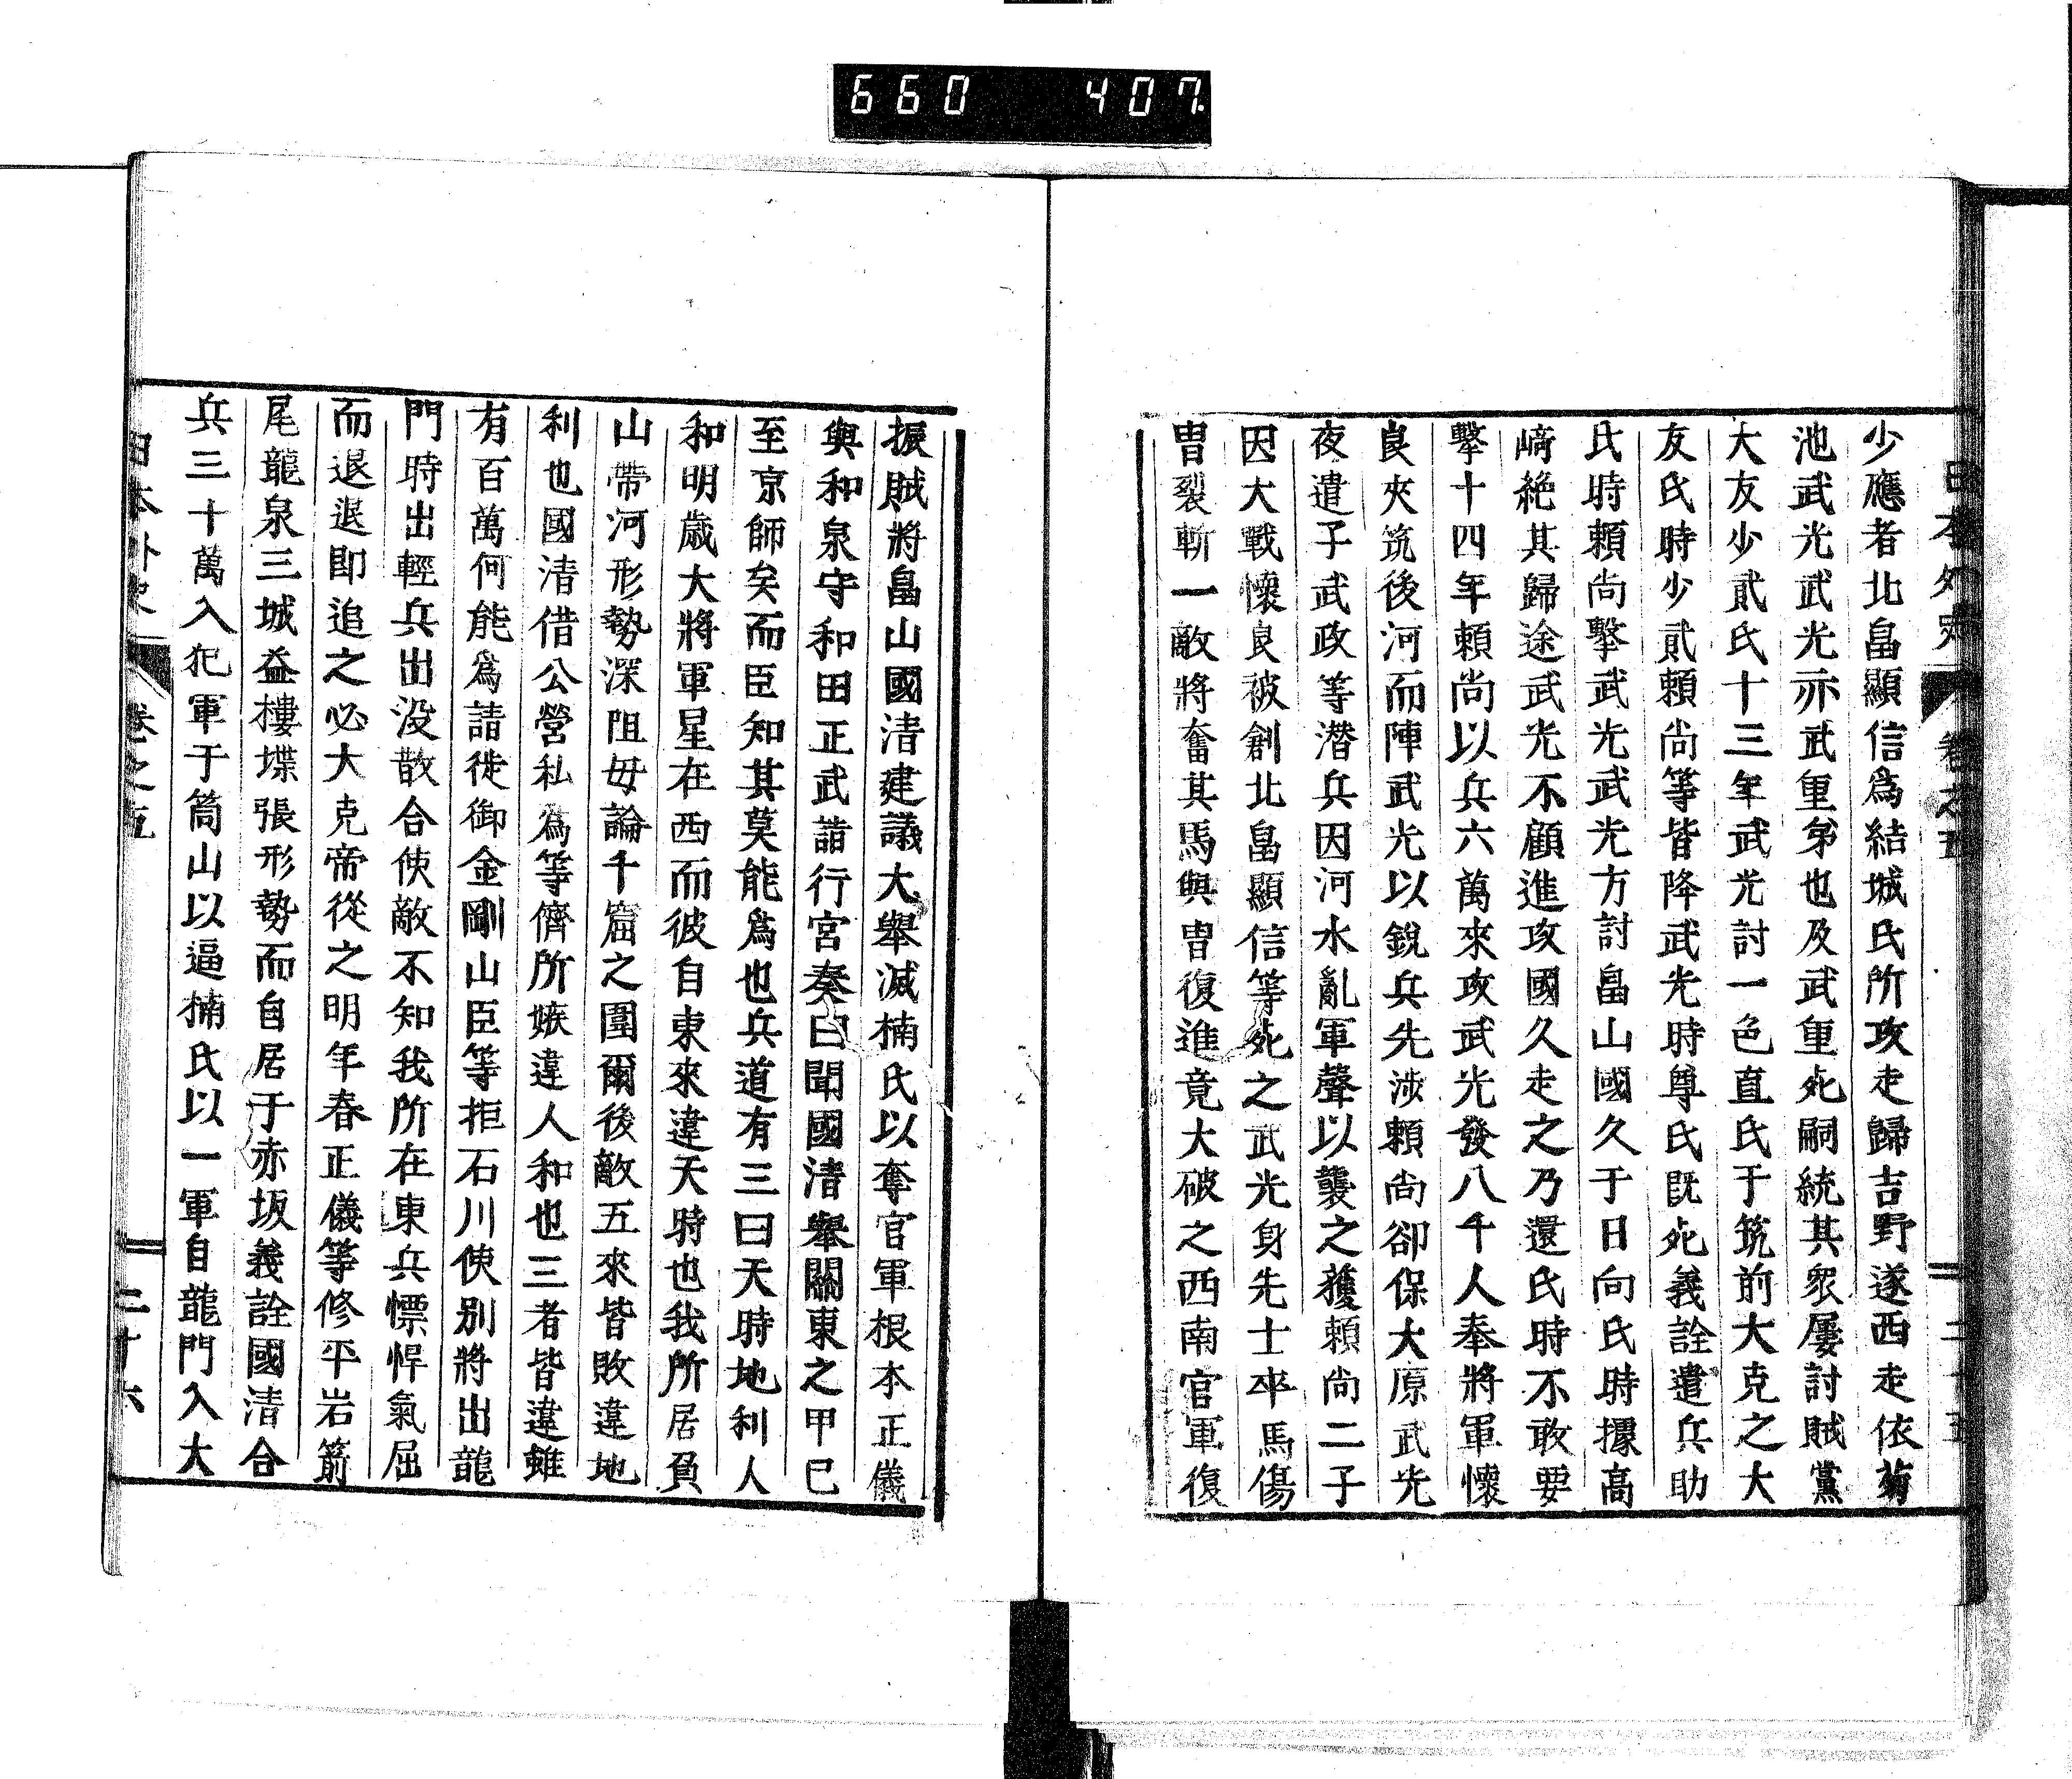 660 407.
日本外史 卷之五 二十五
少應者北畠顯信爲結城氏所攻走歸吉野遂西走依菊
池武光武光亦武重弟也及武重死嗣統其衆屢討賊黨
大友少貳氏十三年武光討一色直氏于筑前大克之大
友氏時少貳賴尚等皆降武光時尊氏既死義詮遣兵助
氏時賴尚擊武光武光方討畠山國久于日向氏時據高
﨑絶其歸途武光不顧進攻國久走之乃還氏時不敢要
擊十四年賴尚以兵六萬來攻武光發八千人奉將軍懷
良夾筑後河而陣武光以銳兵先涉賴尚卻保大原武光
夜遣子武政等潜兵因河水亂軍聲以襲之獲賴尚二子
因大戰懷良被創北畠顯信等死之武光身先士卒馬傷
冑裂斬一敵將奮其馬與冑復進竟大破之西南官軍復
振賊將畠山國清建議大舉滅楠氏以奪官軍根本正儀
與和泉守和田正武詣行宮奏曰聞國清舉關東之甲已
至京師矣而臣知其莫能爲也兵道有三曰天時地利人
和明歲大將軍星在西而彼自東來違天時也我所居負
山帶河形勢深阻毋論千窟之圍爾後敵五來皆敗違地
利也國清借公營私爲等儕所嫉違人和也三者皆違雖
有百萬何能爲請徙御金剛山臣等拒石川使別將出龍
門時出輕兵出没散合使敵不知我所在東兵慓悍氣屈
而退退即追之必大克帝從之明年春正儀等修平岩箭
尾龍泉三城益樓堞張形勢而自居于赤坂義詮國清合
兵三十萬入犯軍于筒山以逼楠氏以一軍自龍門入大
日本外史 卷之五 二十六